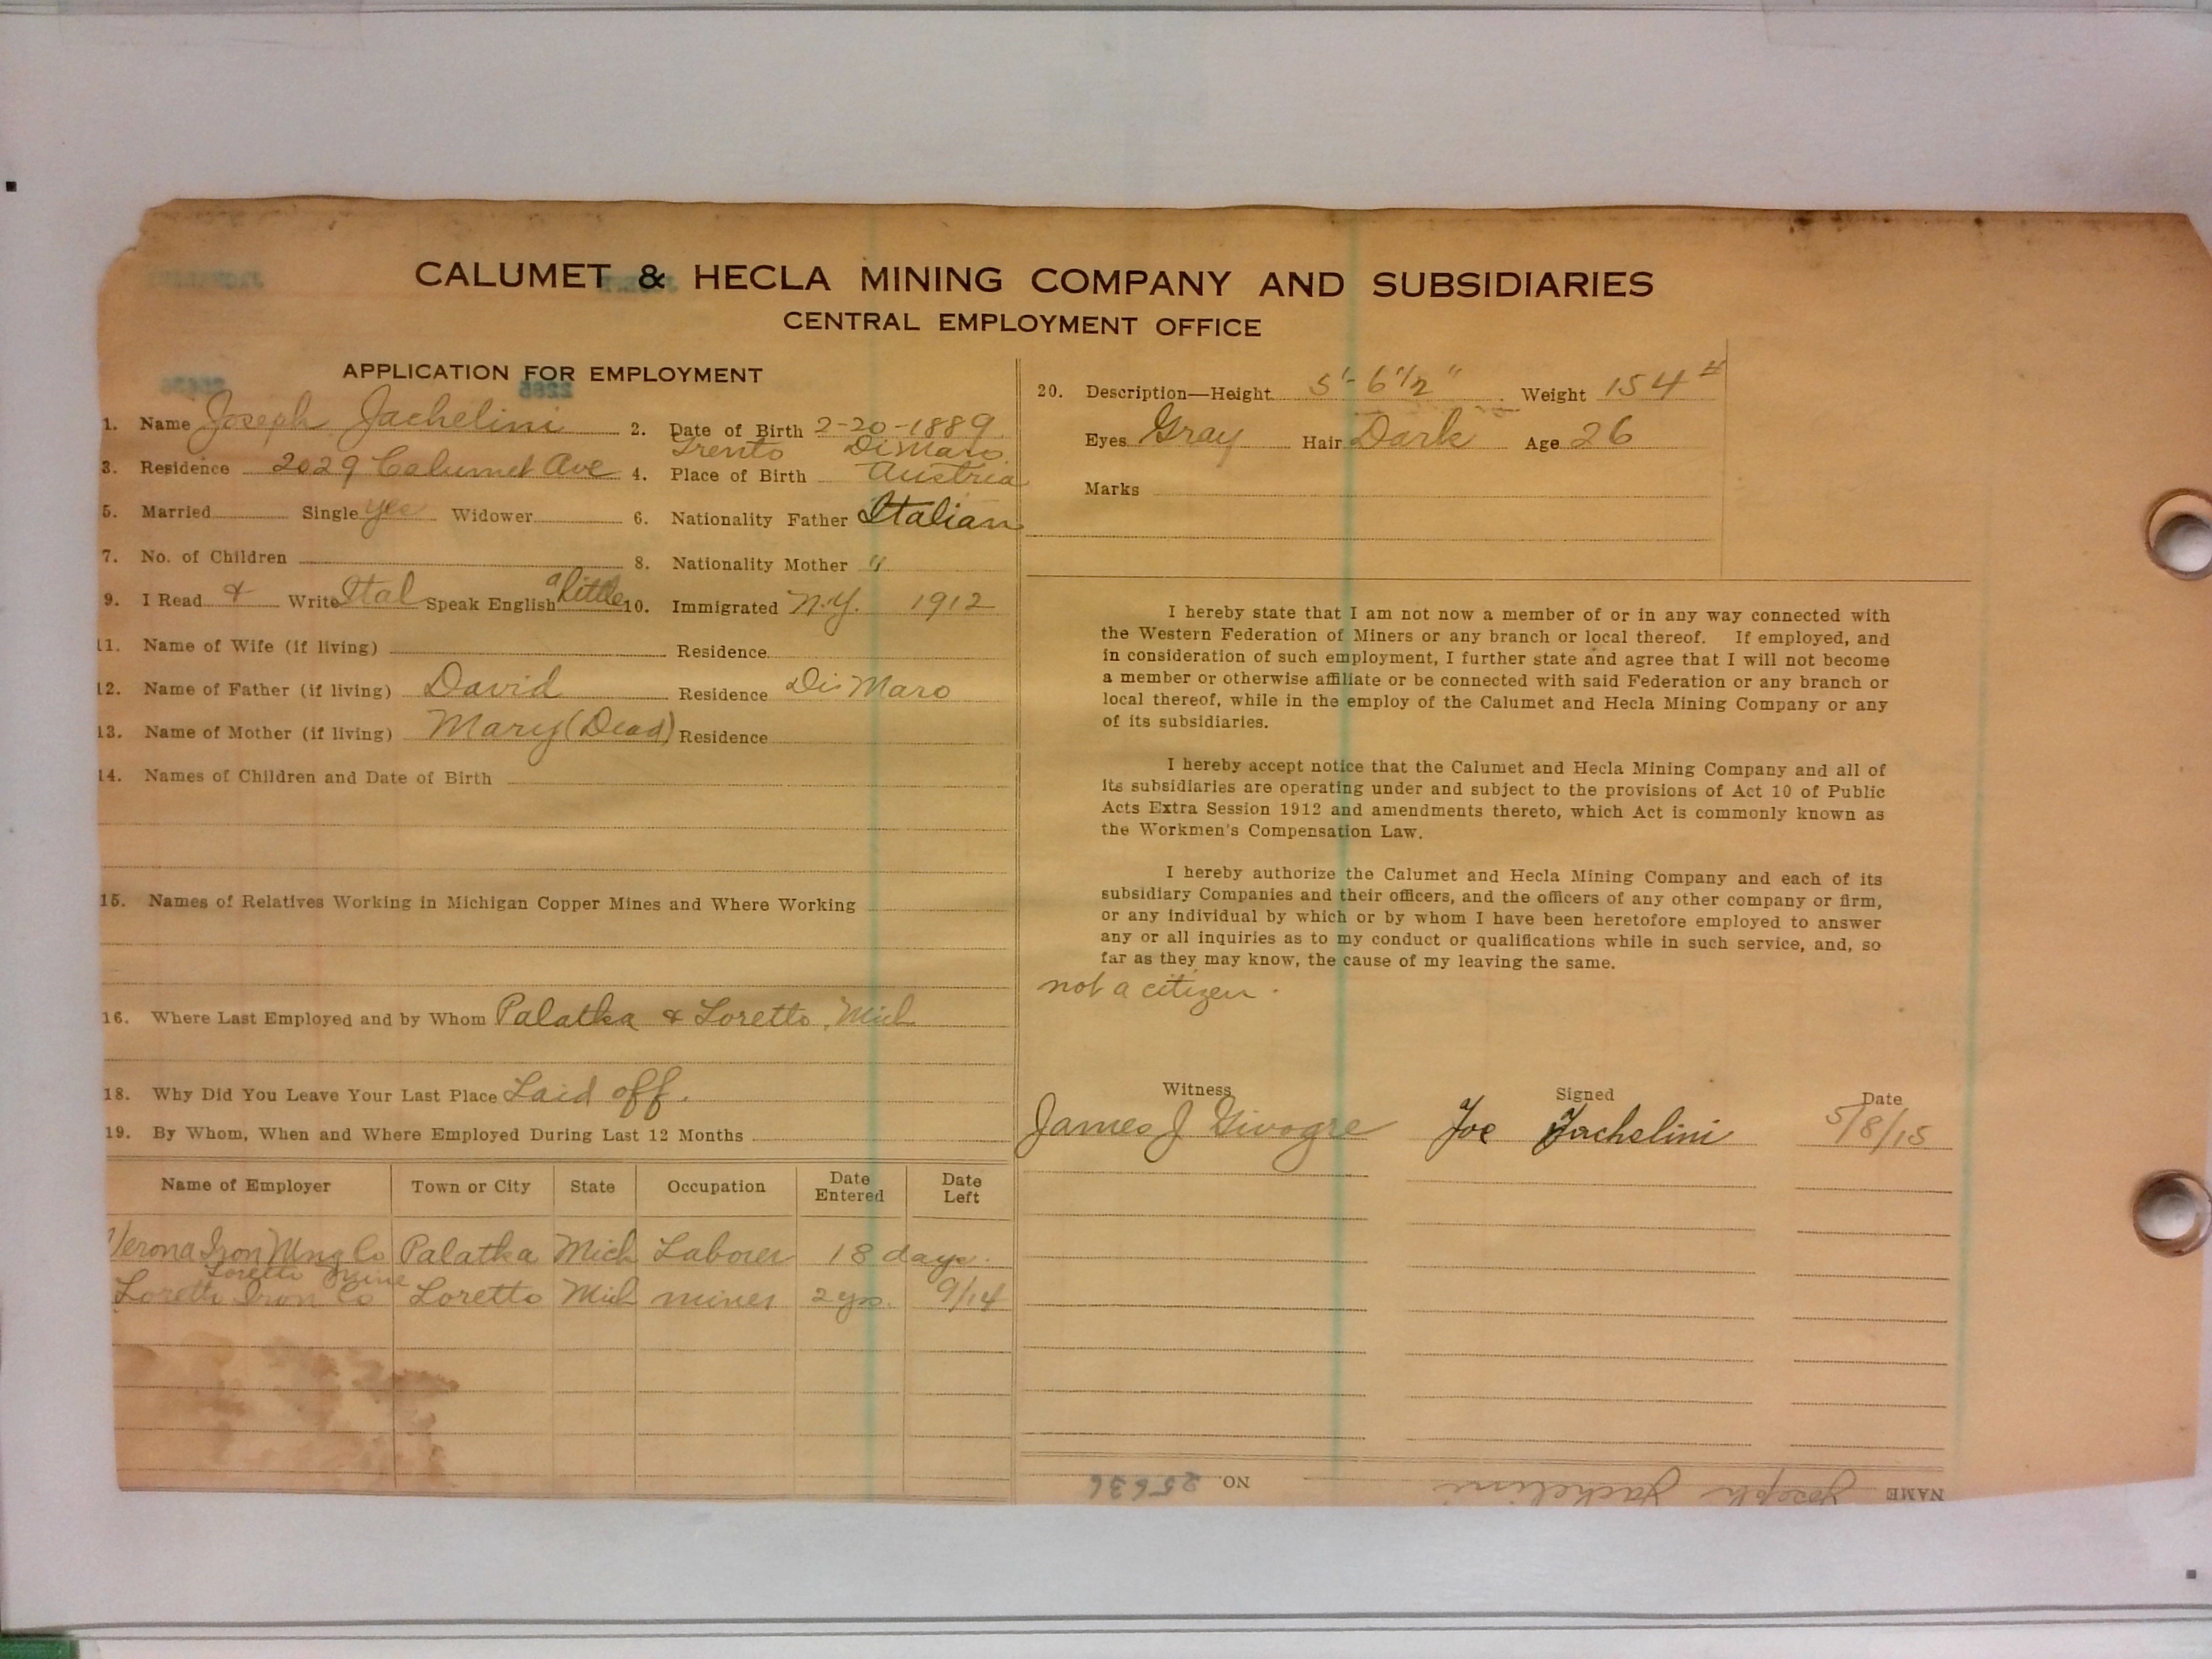 CALUMET & HECLA MINING COMPANY AND SUBSIDIARIES
CENTRAL EMPLOYMENT OFFICE
APPLICATION FOR EMPLOYMENT
2285
1. Name Joseph Jachelini 2. Date of Birth 2-20-1889
Trento DiMaro
3. Residence 2029 Calumet Ave 4. Place of Birth Austria
5. Married Single yes Widower 6. Nationality Father Italian
7. No. of Children 8. Nationality Mother "
9. I Read & Write Ital Speak English a little 10. Immigrated N.Y. 1912
11. Name of Wife (if living) Residence
12. Name of Father (if living) David Residence Di Maro
13. Name of Mother (if living) Mary (Dead) Residence
14. Names of Children and Date of Birth
15. Names of Relatives Working in Michigan Copper Mines and Where Working
16. Where Last Employed and by Whom Palatka & Loretto, Mich
18. Why Did You Leave Your Last Place Laid off.
19. By Whom, When and Where Employed During Last 12 Months
Name of Employer Town or City State Occupation Date Entered Date Left
Verona Iron Mng Co Palatka Mich Laborer 18 days.
Loretto Mine
Loretto Iron Co Loretto Mich miner 2 yrs. 9/14
20. Description—Height 5'-6 1/2" Weight 154 #
Eyes Gray Hair Dark Age 26
Marks
I hereby state that I am not now a member of or in any way connected with
the Western Federation of Miners or any branch or local thereof. If employed, and
in consideration of such employment, I further state and agree that I will not become
a member or otherwise affiliate or be connected with said Federation or any branch or
local thereof, while in the employ of the Calumet and Hecla Mining Company or any
of its subsidiaries.
I hereby accept notice that the Calumet and Hecla Mining Company and all of
its subsidiaries are operating under and subject to the provisions of Act 10 of Public
Acts Extra Session 1912 and amendments thereto, which Act is commonly known as
the Workmen's Compensation Law.
I hereby authorize the Calumet and Hecla Mining Company and each of its
subsidiary Companies and their officers, and the officers of any other company or firm,
or any individual by which or by whom I have been heretofore employed to answer
any or all inquiries as to my conduct or qualifications while in such service, and, so
far as they may know, the cause of my leaving the same.
not a citizen.
Witness Signed Date
James J Givogre Joe Jachelini 5/8/15
NAME Joseph Jachelini NO 25636